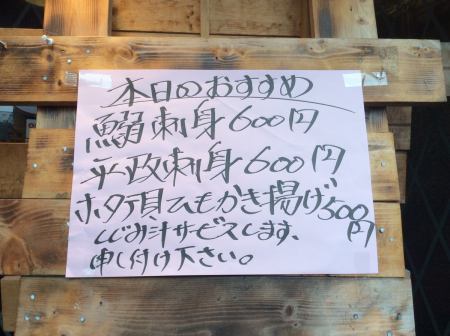 本日のおすすめ
鰯刺身600円
平政刺身600円
ホタテ貝ひもかき揚げ500円
しじみ汁サービスします、
申し付け下さい。